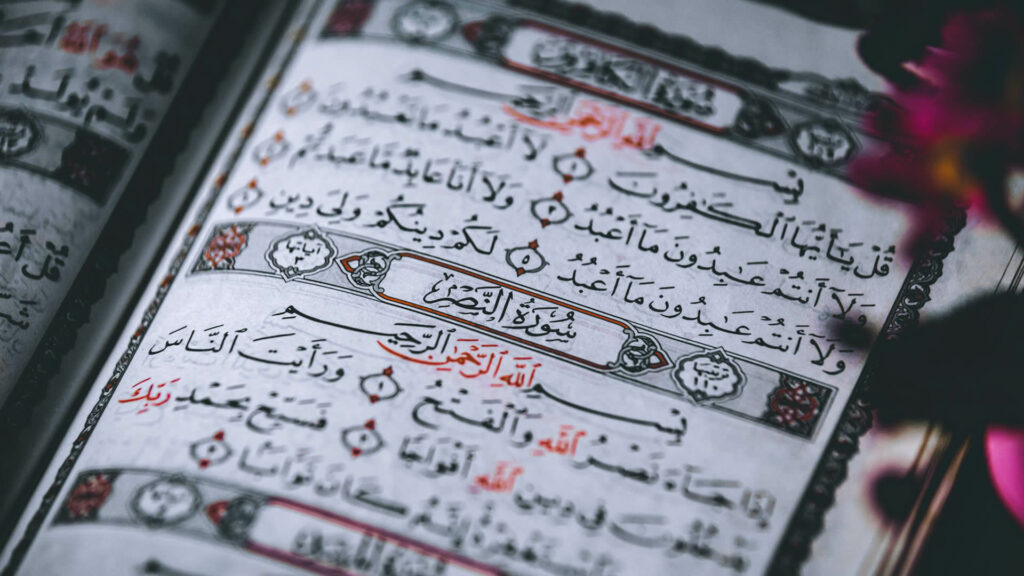 سُورَةُ الكَافِرُونَ
بِسْمِ ٱللَّهِ ٱلرَّحْمَٰنِ ٱلرَّحِيمِ
قُلْ يَٰٓأَيُّهَا ٱلْكَٰفِرُونَ ١ لَآ أَعْبُدُ مَا تَعْبُدُونَ ٢
وَلَآ أَنتُمْ عَٰبِدُونَ مَآ أَعْبُدُ ٣ وَلَآ أَنَا۠ عَابِدٌ مَّا عَبَدتُّمْ ٤
وَلَآ أَنتُمْ عَٰبِدُونَ مَآ أَعْبُدُ ٥ لَكُمْ دِينُكُمْ وَلِىَ دِينِ ٦
سُورَةُ النَّصْرِ آياتها ٣
بِسْمِ ٱللَّهِ ٱلرَّحْمَٰنِ ٱلرَّحِيمِ
إِذَا جَآءَ نَصْرُ ٱللَّهِ وَٱلْفَتْحُ ١ وَرَأَيْتَ ٱلنَّاسَ
يَدْخُلُونَ فِى دِينِ ٱللَّهِ أَفْوَاجًا ٢ فَسَبِّحْ بِحَمْدِ رَبِّكَ
وَٱسْتَغْفِرْهُ إِنَّهُۥ كَانَ تَوَّابًۢا ٣
قُلْ هُوَ ٱللَّهُ
وَلَمْ يُولَدْ
قُلْ